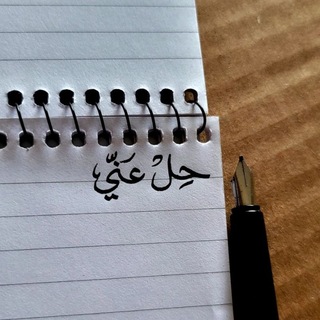 حِلْ عَنّي